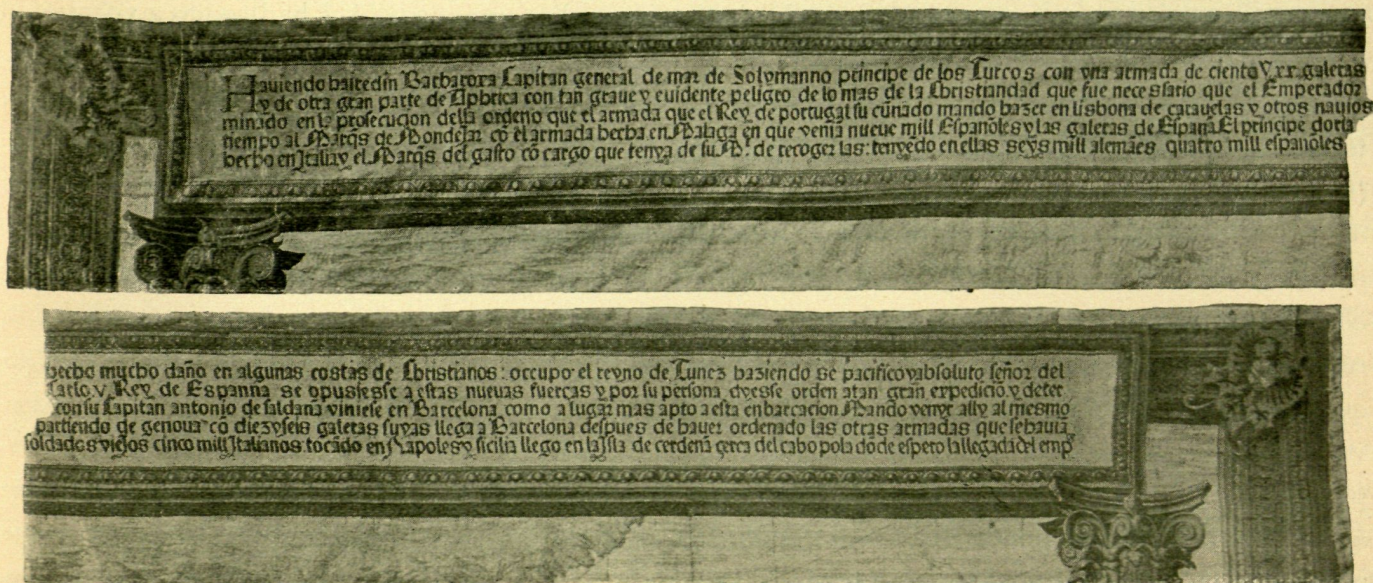 Haviendo haitedin Barbaroxa Capitan general de mar de Solymanno principe de los Turcos con vna armada de ciento y xx galeras
y de otra gran parte de Aphrica con tan graue y euidente peligro de lo mas de la Christiandad que fue necessario que el Emperador
minado en la prosecucion della ordeno que el armada que el Rey de portugal su cuñado mando hazer en lisbona de carauelas y otros nauios
tiempo al Marq̃s de Mondejar cõ el armada hecha en Malaga en que venia nueue mill Españoles y las galeras de España El principe doria
hecho en Italia y el Marq̃s del gasto cõ cargo que tenya de su M. de recoger las: tenyẽdo en ellas seys mill alemães quatro mill españoles
hecho mucho daño en algunas costas de Christianos: occupo el reyno de Tunez haziendo se pacifico y absoluto señor del
Carlo. v. Rey de Espanna se opusiesse a estas nueuas fuerças y por su persona dyesse orden a tan gran expediciõ. y deter
con su Capitan antonio de saldana viniese en Barcelona como a lugar mas apto a esta enbarcacion Mando venyr ally al mesmo
partiendo de genoua cõ diez y seis galeras suyas llega a Barcelona despues de hauer ordenado las otras armadas que se hauiã
soldados viejos cinco mill Italianos. tocãdo en Napoles y sicilia llego en la Isla de cerdeña cerca del cabo pola dõde espero la llegada del emp